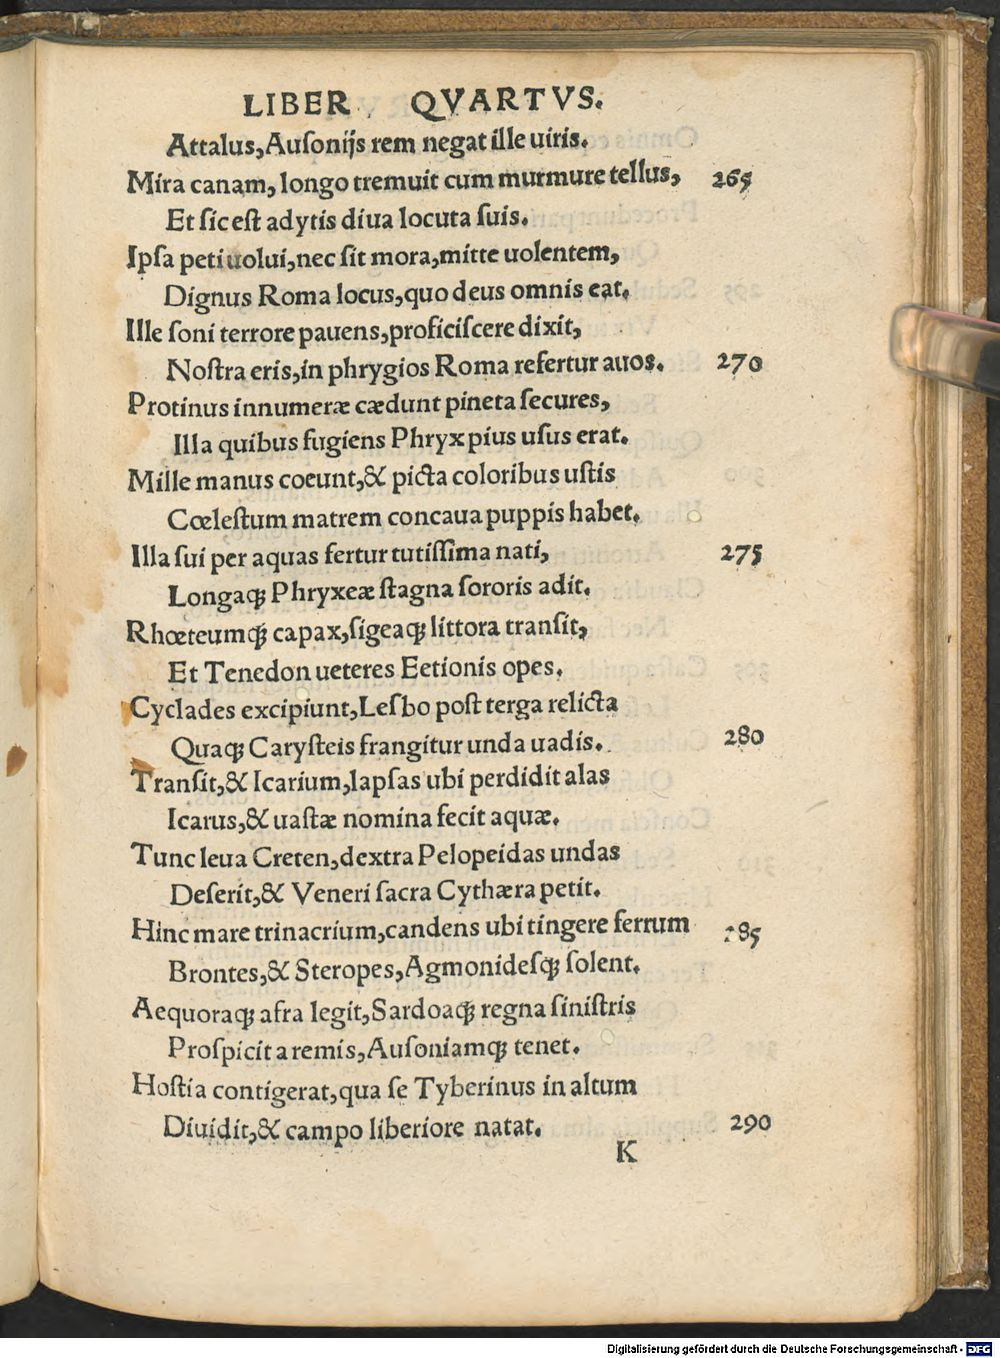 LIBER QVARTVS.
Attalus,Auſonijs rem negat ille uiris.
Mira canam, longo tremuit cum murmure tellus, 265
Et ſic eſt adytis diua locuta ſuis.
Ipſa peti uolui,nec ſit mora,mitte uolentem,
Dignus Roma locus,quo deus omnis eat.
Ille ſoni terrore pauens,proficiſcere dixit,
Noſtra eris,in phrygios Roma refertur auos. 270
Protinus innumeræ cædunt pineta ſecures,
Illa quibus fugiens Phryx pius uſus erat.
Mille manus coeunt,& picta coloribus uſtis
Cœleſtum matrem concaua puppis habet.
Illa ſui per aquas fertur tutiſſima nati, 275
Longaq; Phryxeæ ſtagna ſororis adit.
Rhœteumq; capax,ſigeaq; littora tranſit,
Et Tenedon ueteres Eetionis opes.
Cyclades excipiunt,Leſbo poſt terga relicta
Quaq; Caryſteis frangitur unda uadis. 280
Tranſit,& Icarium,lapſas ubi perdidit alas
Icarus,& uaſtæ nomina fecit aquæ.
Tunc leua Creten,dextra Pelopeidas undas
Deſerit,& Veneri ſacra Cythæra petit.
Hinc mare trinacrium,candens ubi tingere ferrum 285
Brontes,& Steropes,Agmonideſq; ſolent.
Aequoraq; afra legit,Sardoaq; regna ſiniſtris
Proſpicit a remis,Auſoniamq; tenet.
Hoſtia contigerat,qua ſe Tyberinus in altum
Diuidit,& campo liberiore natat. 290
K
Digitalisierung gefördert durch die Deutsche Forschungsgemeinschaft - DFG